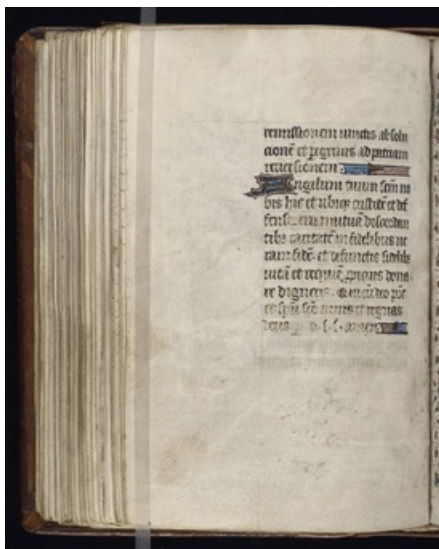 remissionem iunctis absolu
cionē et pegrinis ad patriam
reuersionem.
Angelum tuum scm no
bis hic et ubiqꝫ custodē et de
fensorem mutuā discordan
tibꝫ caritatē infidelibus ue
ram fidē. et defunctis fidelibꝫ
uitā et requiē ppicius dona
re digneris. Qui cū deo pre
et spū sco uiuis et regnas
deus amen